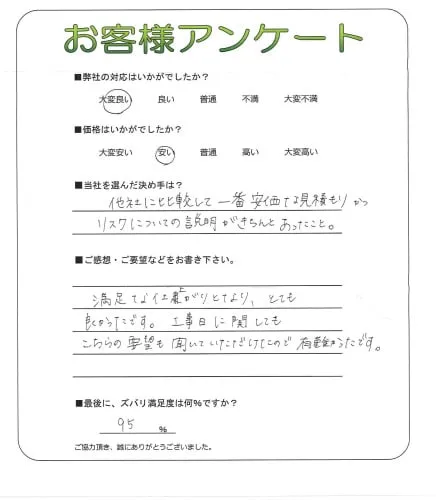 お客様アンケート
■弊社の対応はいかがでしたか？
大変良い 良い 普通 不満 大変不満
■価格はいかがでしたか？
大変安い 安い 普通 高い 大変高い
■当社を選んだ決め手は？
他社に比較して一番安価な見積もりかつ
リスクについての説明がきちんとあったこと。
■ご感想・ご要望などをお書き下さい。
満足な仕上がりとなり、とても
良かったです。工事日に関しても
こちらの要望も聞いていただけたので有難かったです。
■最後に、ズバリ満足度は何%ですか？
95 %
ご協力頂き、誠にありがとうございました。